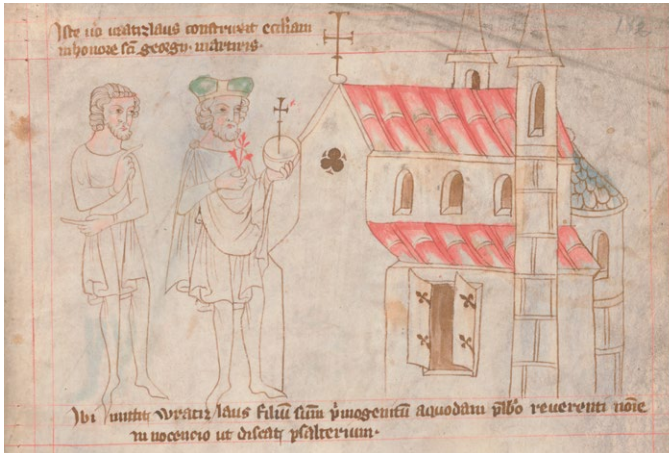 Iste uo wratizlaus construxit eccliam
in honore sci georgii martiris.
Ibi mittit wratizlaus filiu suum pmogenitu aquodam pbro reverenti noie
innocencio ut discat psalterium.